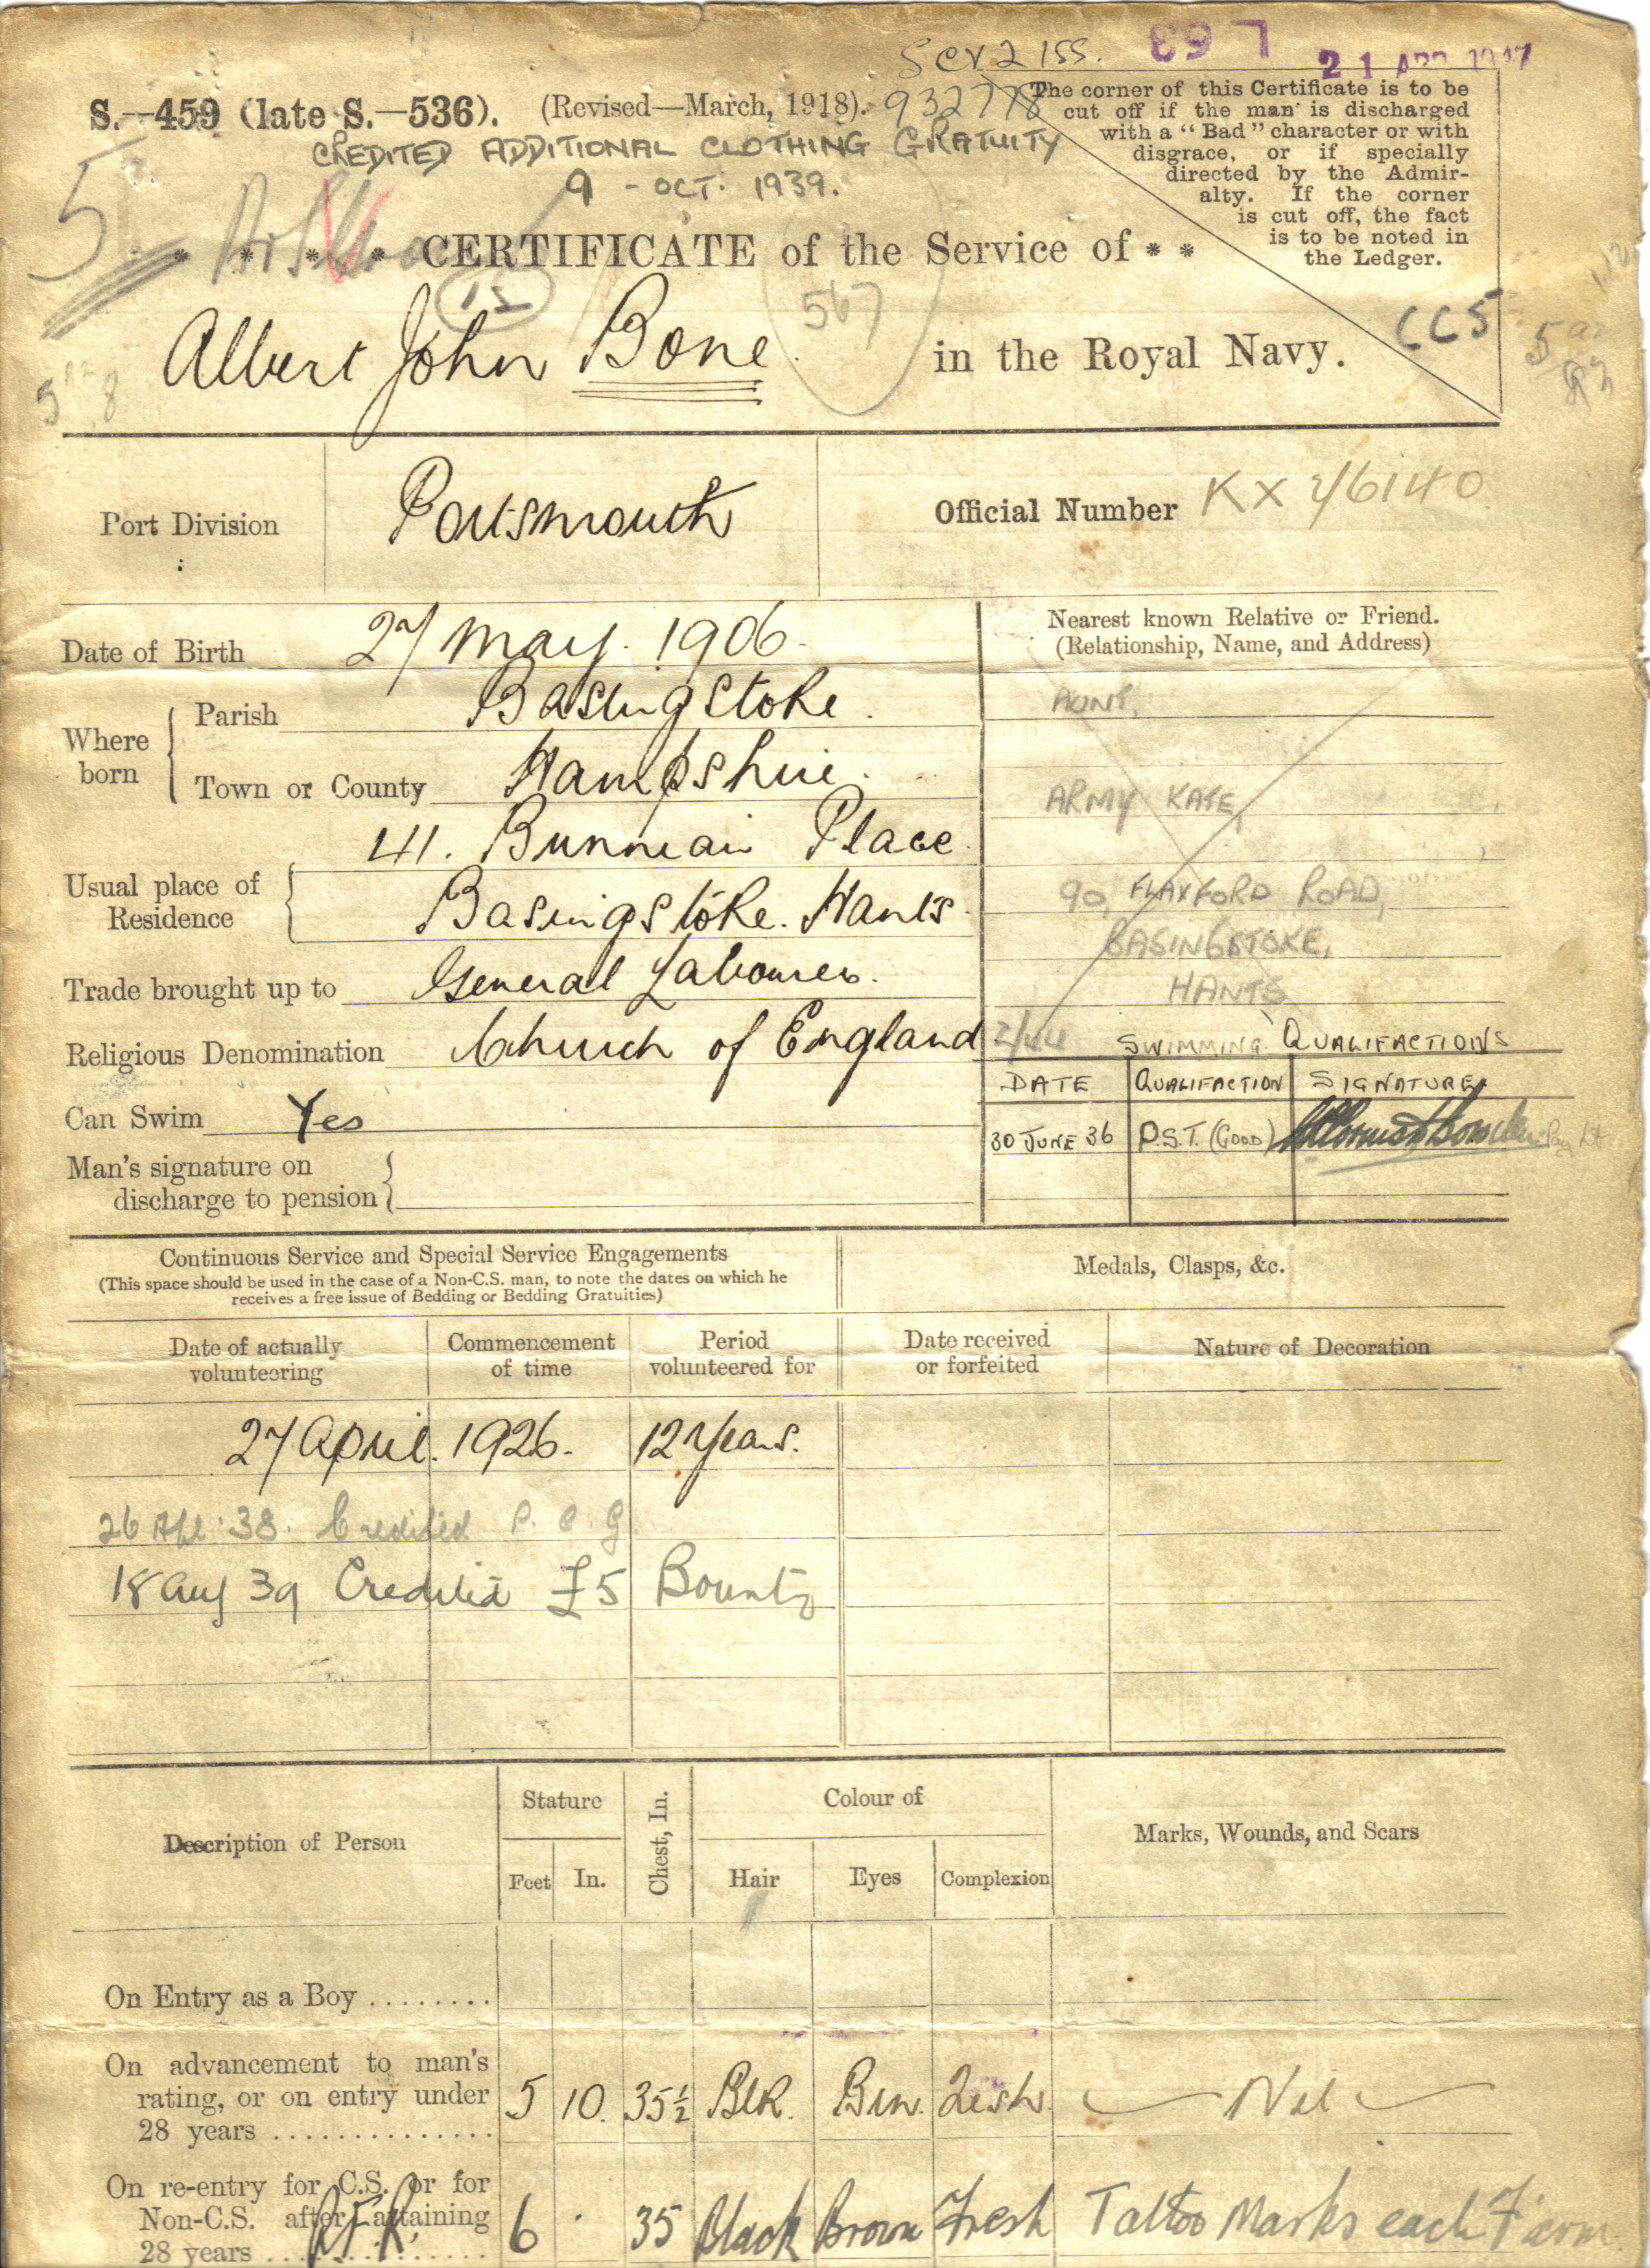 Ser 2 155. 697 21 APR 1947
S.—459 (late S.—536). (Revised—March, 1918). 932778
The corner of this Certificate is to be
cut off if the man is discharged
with a “Bad” character or with
disgrace, or if specially
directed by the Admir-
alty. If the corner
is cut off, the fact
is to be noted in
the Ledger.
CREDITED ADDITIONAL CLOTHING GRATUITY
9 - OCT. 1939.
5
* * * * CERTIFICATE of the Service of * *
567
CC5
Albert John Bone in the Royal Navy.
Port Division Portsmouth Official Number KX 46140
Date of Birth 27 May. 1906.
Where born
Parish Basingstoke.
Town or County Hampshire.
Usual place of Residence
41. Place.
Basingstoke. Hants.
Trade brought up to General Labourer.
Religious Denomination Church of England
Can Swim Yes
Man's signature on
discharge to pension
Nearest known Relative or Friend.
(Relationship, Name, and Address)
AUNT,
ARMY KATE,
90, FLAXFORD ROAD,
BASINGSTOKE,
HANTS
SWIMMING QUALIFACTIONS
DATE QUALIFACTION SIGNATURE
30 JUNE 36 P.S.T. (GOOD)
Continuous Service and Special Service Engagements
(This space should be used in the case of a Non-C.S. man, to note the dates on which he
receives a free issue of Bedding or Bedding Gratuities)
Medals, Clasps, &c.
Date of actually
volunteering
Commencement
of time
Period
volunteered for
Date received
or forfeited
Nature of Decoration
27 April. 1926. 12 Years.
26 Apl. 38. Credited P. C. G
18 Aug 39 Credited £5 Bounty
Description of Person
Stature
Feet In.
Chest, In.
Colour of
Hair Eyes Complexion
Marks, Wounds, and Scars
On Entry as a Boy ........
On advancement to man's
rating, or on entry under
28 years ..............
5 10. 35½ Blk. Brn. Nil
On re-entry for C.S. or for
Non-C.S. after attaining
28 years ..............
6 35 Black Brown Fresh Tattoo Marks each F'arm